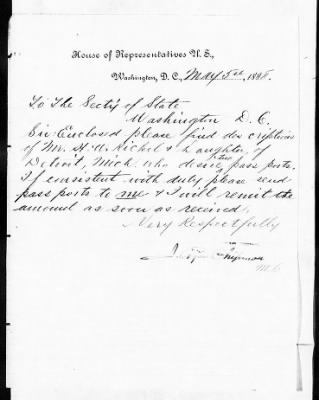 House of Representatives U. S.,
Washington, D. C., May 5th, 1888.
To The Sect'y of State
Washington D. C.
Sir: Enclosed please find des criptions
of Mr. H. A. & Daughter, of
Detroit, Mich. who desire pass ports.
If consistent with duty please send
pass ports to me & I will remit the
amount as soon as received.
Very Respectfully
M.C.